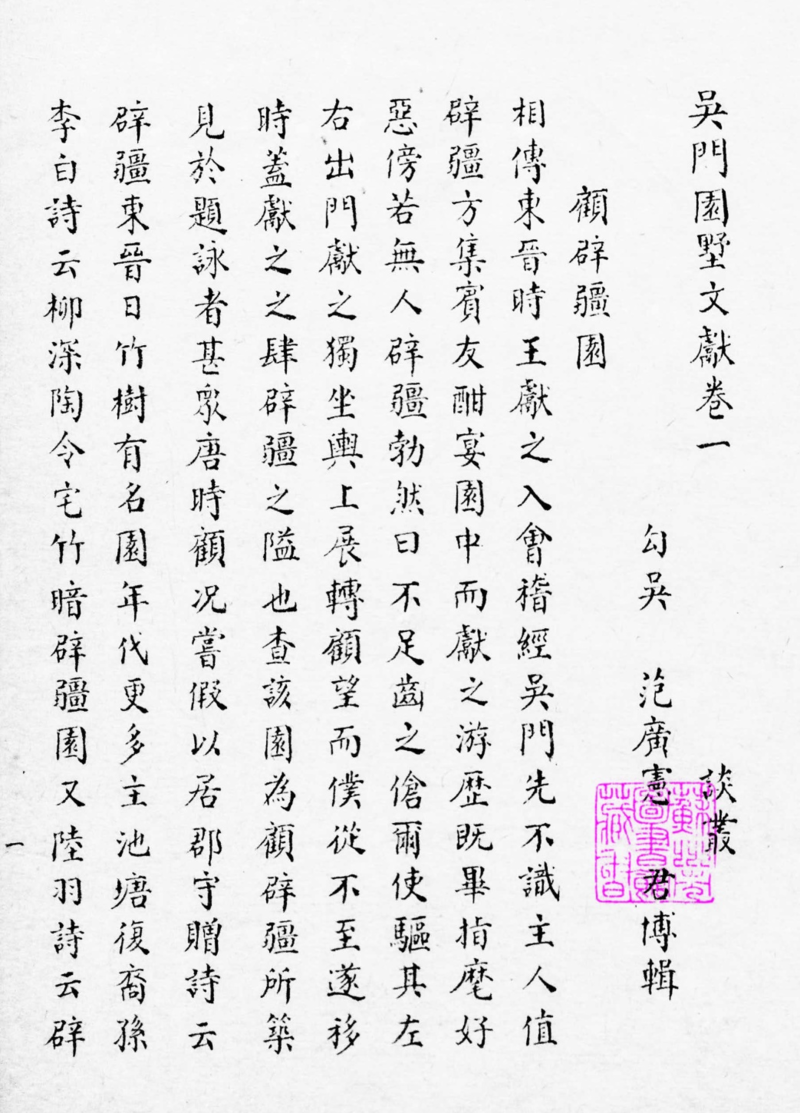 吳門園墅文獻卷一
談叢
勾吳 范廣憲 君博輯
顧辟疆園
相傳東晉時王獻之入會稽經吳門先不識主人值
辟疆方集賓友酣宴園中而獻之游歷既畢指麾好
惡傍若無人辟疆勃然曰不足齒之傖爾使驅其左
右出門獻之獨坐輿上展轉顧望而僕從不至遂移
時蓋獻之之肆辟疆之隘也查該園為顧辟疆所築
見於題詠者甚眾唐時顧況嘗假以居郡守贈詩云
辟疆東晉日竹樹有名園年代更多主池塘復裔孫
李白詩云柳深陶令宅竹暗辟疆園又陸羽詩云辟
一